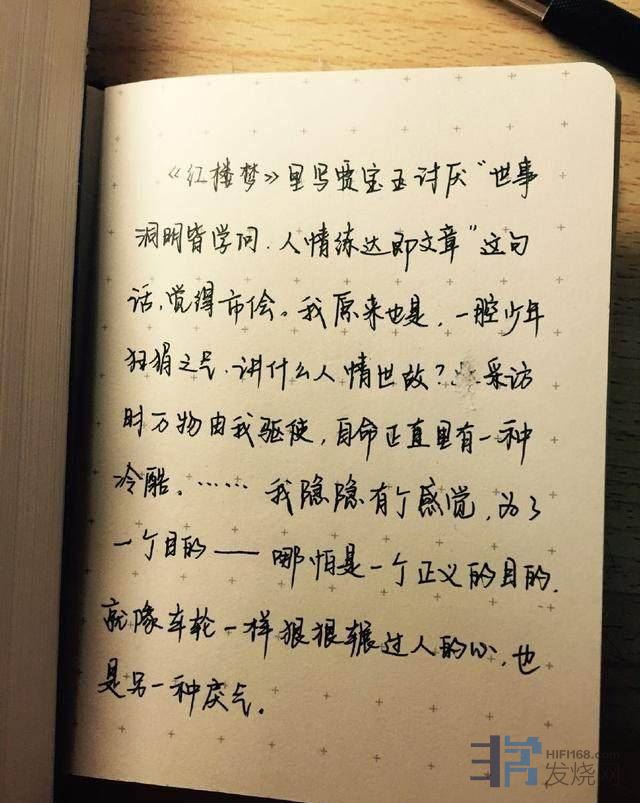 《红楼梦》里写贾宝玉讨厌“世事
洞明皆学问.人情练达即文章”这句
话,觉得市侩。我原来也是,一腔少年
狂狷之气,讲什么人情世故?采访
时万物由我驱使,自命正直里有一种
冷酷。……我隐隐有个感觉,为了
一个目的——哪怕是一个正义的目的.
就像车轮一样狠狠辗过人的心,也
是另一种戾气。
HIFI168.com
发烧网